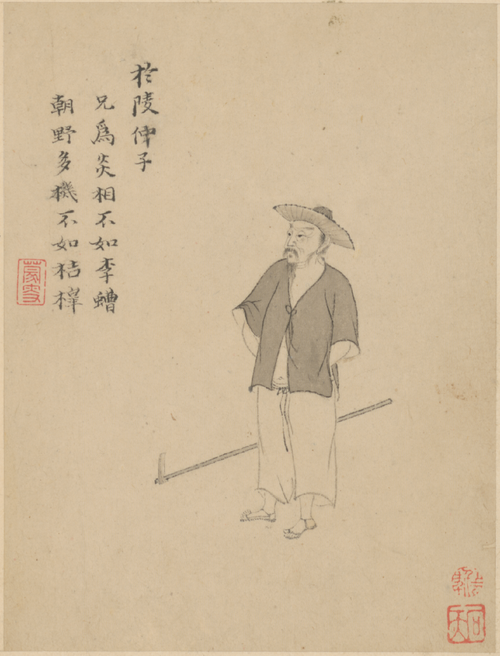 於陵仲子
兄爲炎相不如李螬
朝野多機不如桔槹